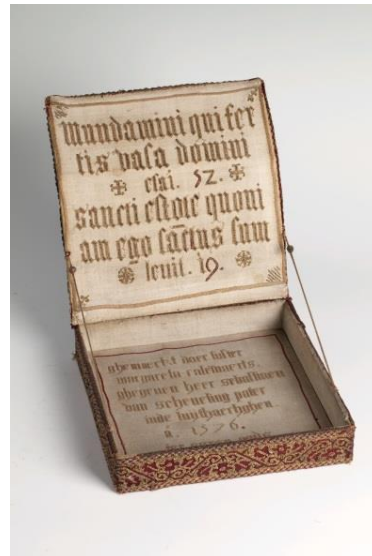 Mundamini qui fer
tis vasa domini
esai. 52.
sancti estote quoni
am ego sāctus sum
leuit. 19.
ghewaert doer suster
margareta
ghegeuen heer sebastiaen
van scheurling pater
inde
á. 1576.